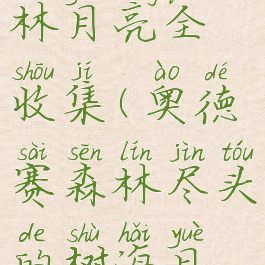 林月亮全
shōu jí ào dé
收集(奥德
sài sēn lín jìn tóu
赛森林尽头
de shù hǎi yuè
的树海月